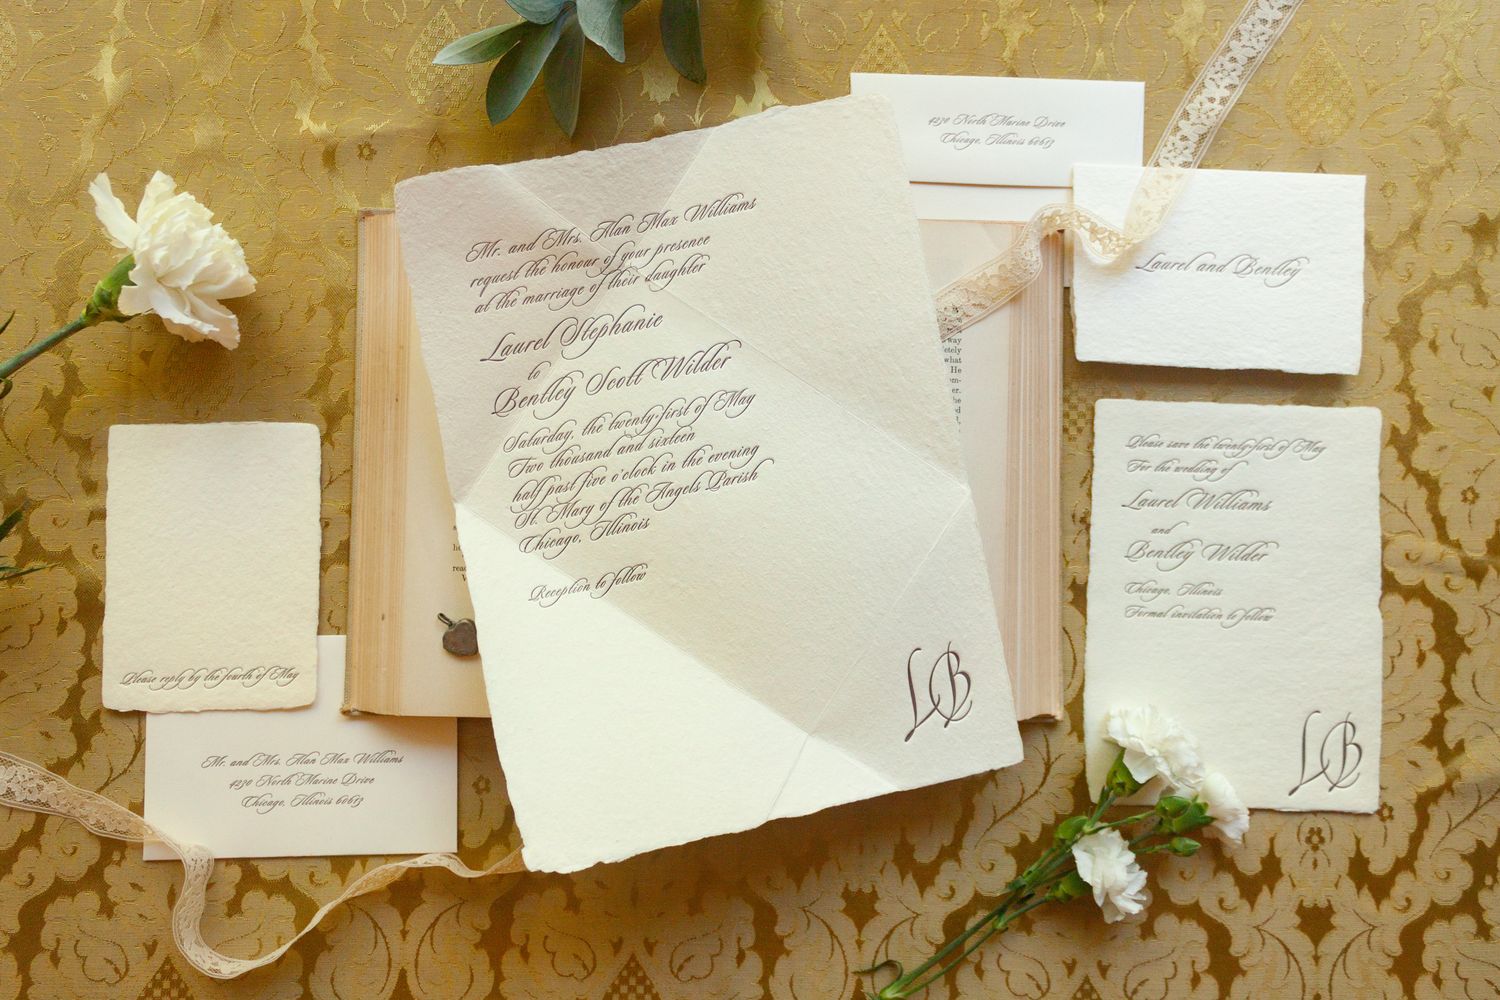 4230 North Marine Drive
Chicago, Illinois 60613
Mr. and Mrs. Alan Max Williams
request the honour of your presence
at the marriage of their daughter
Laurel Stephanie
to
Bentley Scott Wilder
Saturday, the twenty-first of May
Two thousand and sixteen
half past five o'clock in the evening
St. Mary of the Angels Parish
Chicago, Illinois
Reception to follow
LB
Laurel and Bentley
Please save the twenty-first of May
For the wedding of
Laurel Williams
and
Bentley Wilder
Chicago, Illinois
Formal invitation to follow
LB
Please reply by the fourth of May
Mr. and Mrs. Alan Max Williams
4230 North Marine Drive
Chicago, Illinois 60613
way
what
He